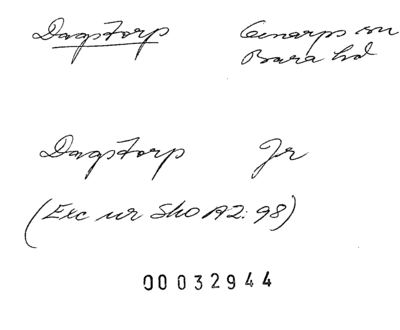 Dagstorp Genarps sn
Bara hd
Dagstorp Jr
(Exc ur Sko A2: 98)
00032944